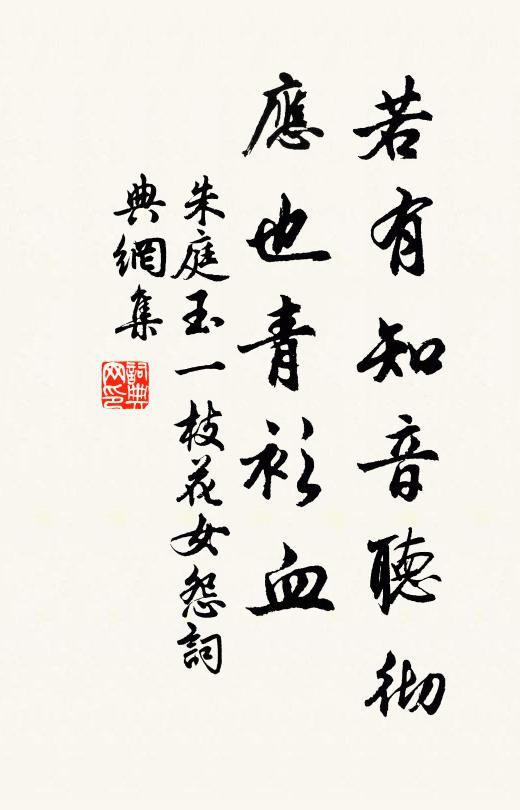 若有知音聽彻
應也青衫血
朱庭玉一枝花女怨詞
典網集
詞典網印